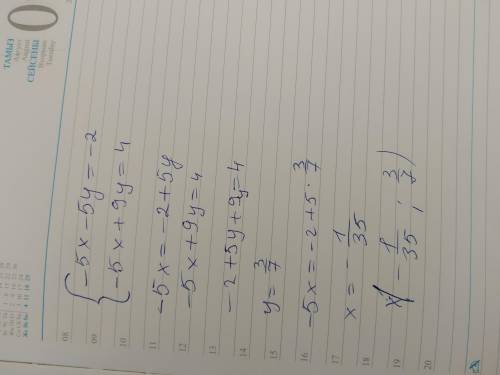 ТАМЫЗ
Август
August
СЕЙСЕНБІ
Вторник
Tuesday
0
08
09
10
11
12
13
14
15
16
17
18
19
20
{-5x-5y=-2
{-5x+9y=4
-5x=-2+5y
-5x+9y=4
-2+5y+9y=4
y=3/7
-5x=-2+5·3/7
x=-1/35
(-1/35; 3/7)